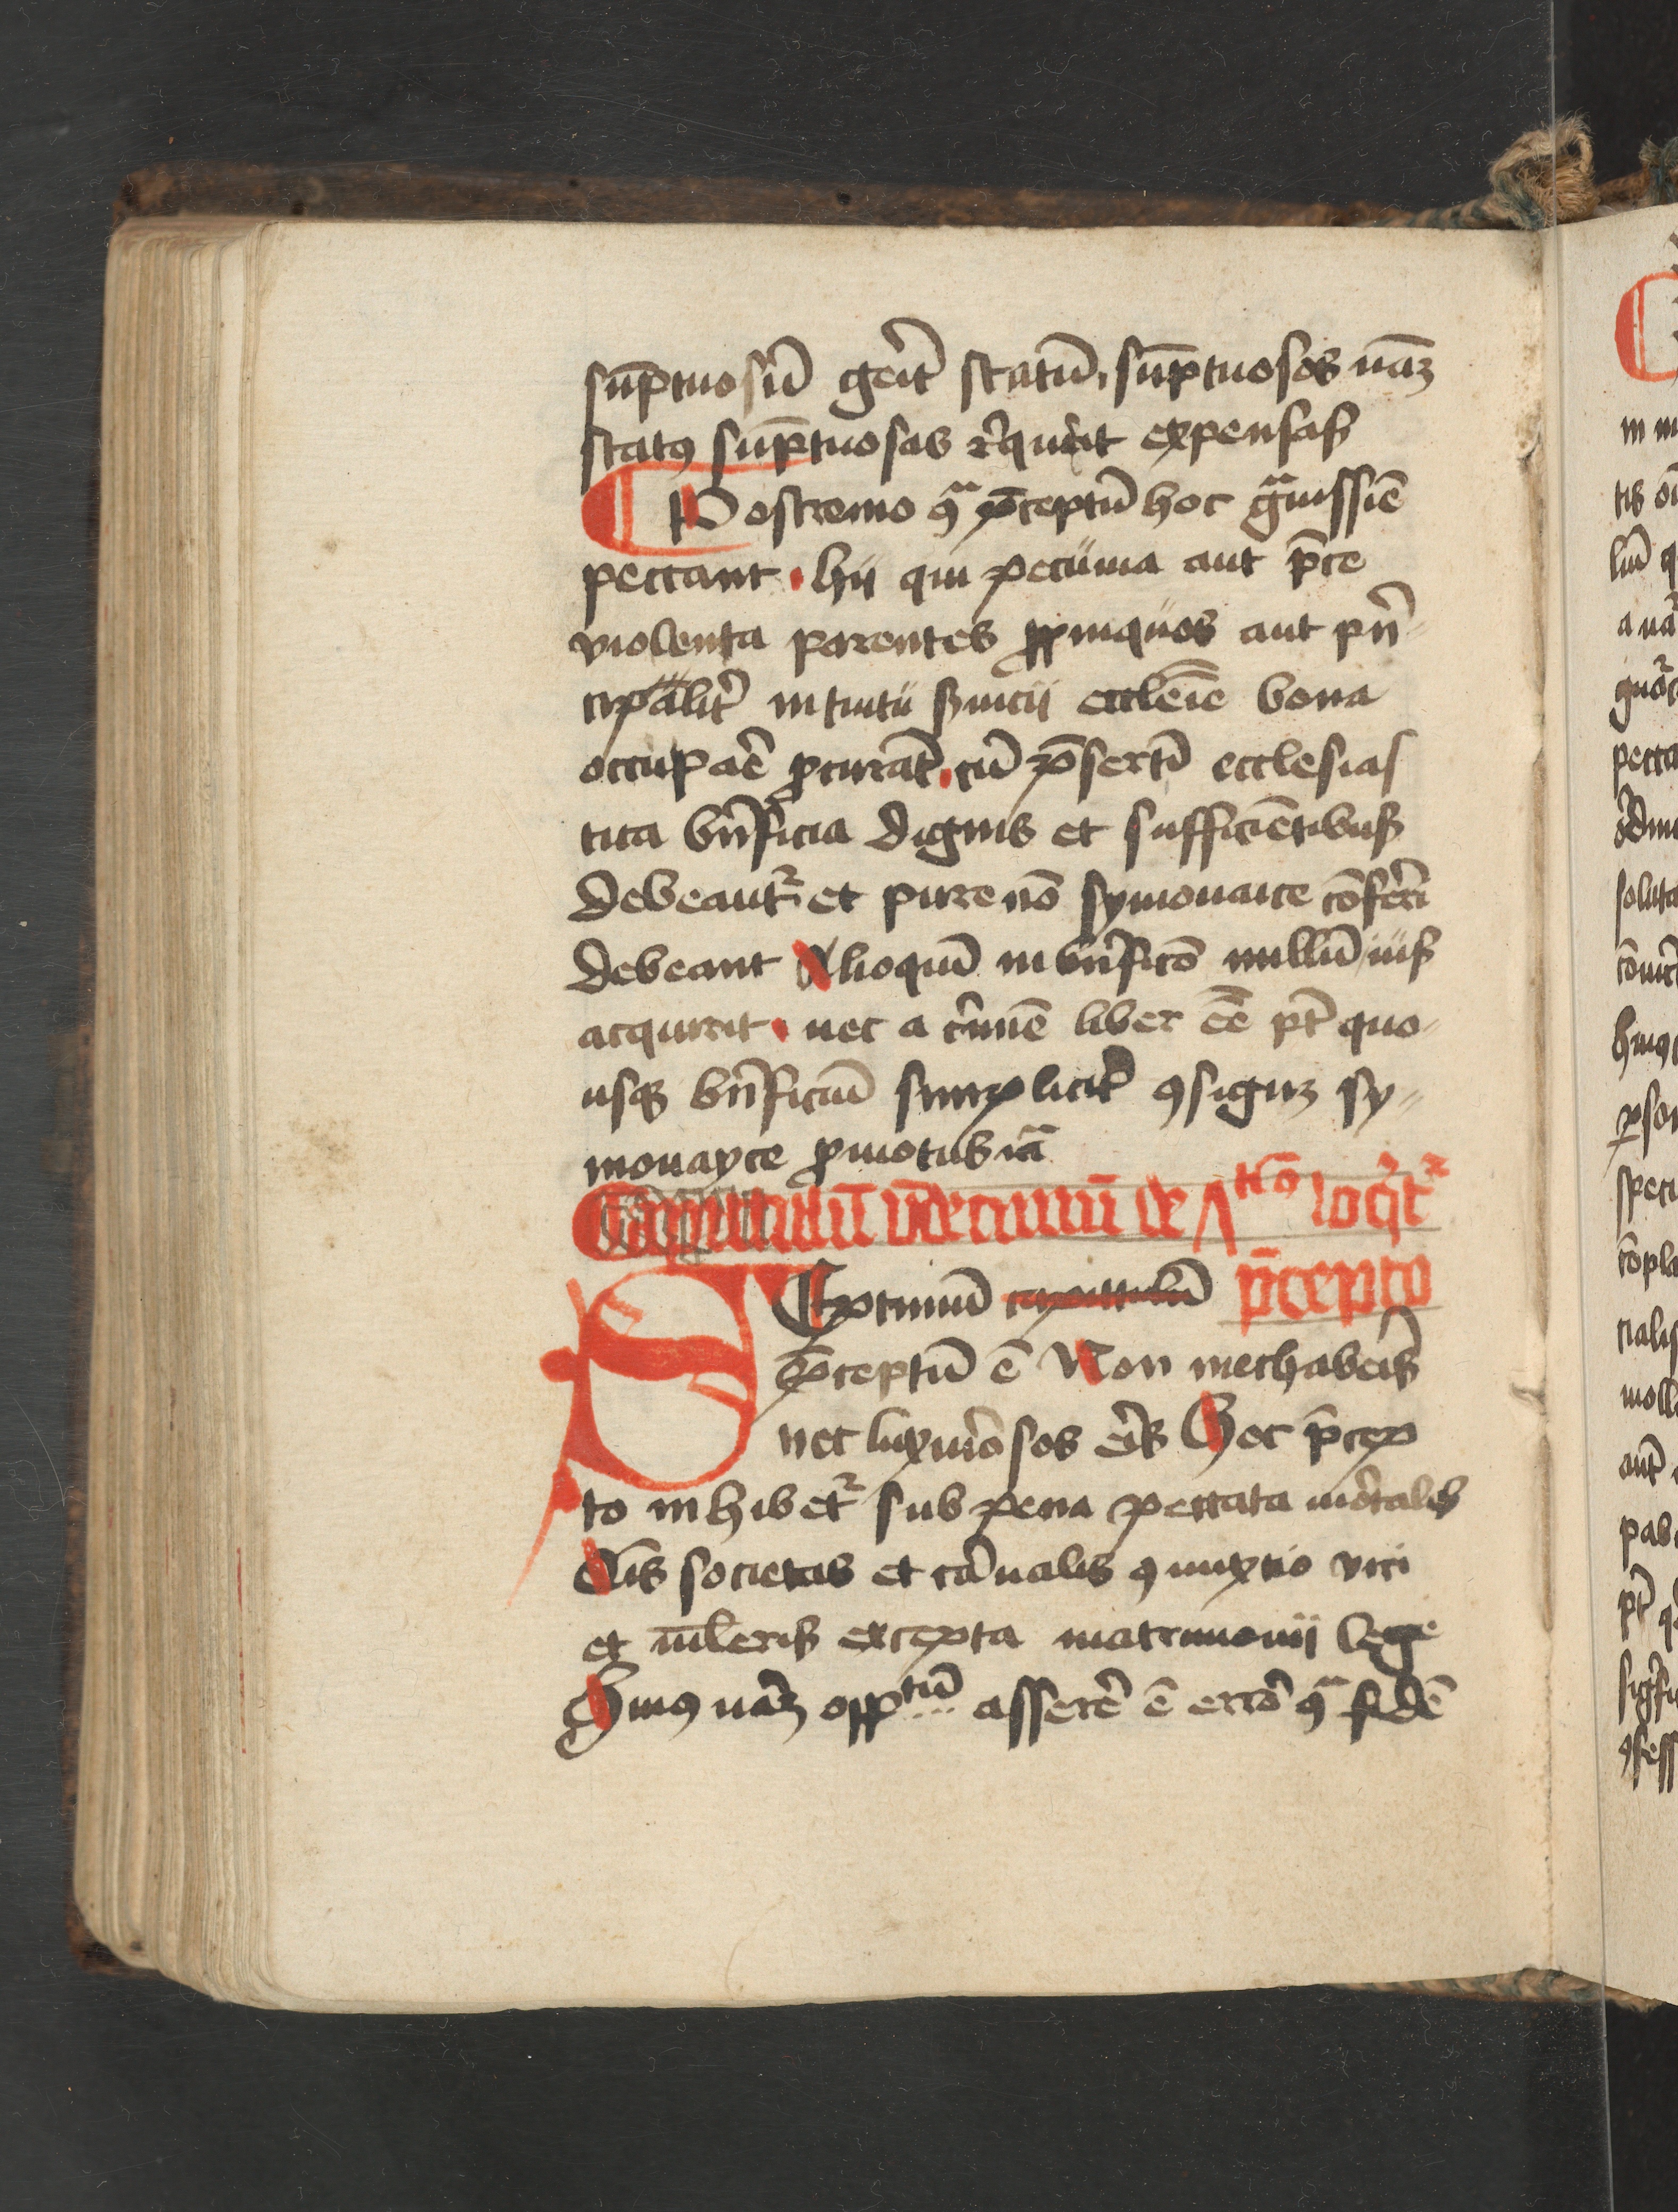 su̅ptuosu̅ geri̅t statu̅, su̅ptuosos na̅ꝫ
statꝰ su̅ptuosas re̅quirit expensas
Postremo ꝯᷓ p̅ceptu̅ hoc gᷓuissi̅e
peccant. hij qui pecunia aut p̅ce
violenta parentes ꝓpinquos aut pri̅n
cipalit̅ intuitu s̅uicij eccle̅ie bona
occupar̅e ꝓcura̅t. cu̅ p̅serti̅ ecclesias
tica bn̅ficia dignis et sufficie̅tibus
debeant᷑ et pure no̅ symonaice co̅ferri
debeant Alioqui̅ in bn̅ficio̅ nullu̅ ius
acquirit. nec a cr̅imi̅e liber e̅e pt̅ quo
usqꝫ bn̅ficiu̅ simplicit̅ ꝯsignꝫ sy
monayce ꝓmotus ia̅
Capittulu̅ vndecimu̅ de ʌtio loqt᷑
Septimu̅ capittulu̅ p̅cepto
p̅ceptu̅ e̅ Non mechaberis
nec luxuriosos eris Hoc p̅cep
to inhibet᷑ sub pena peccata mortalis
Ois̅ societas et carnalis ꝯiuxtio viri
et mu̅lieris excepta matrimonij lege
Huiꝰ na̅ꝫ oppᵗᵘ̅ asserer̅e e̅ error̅ ꝯᷓ fide̅